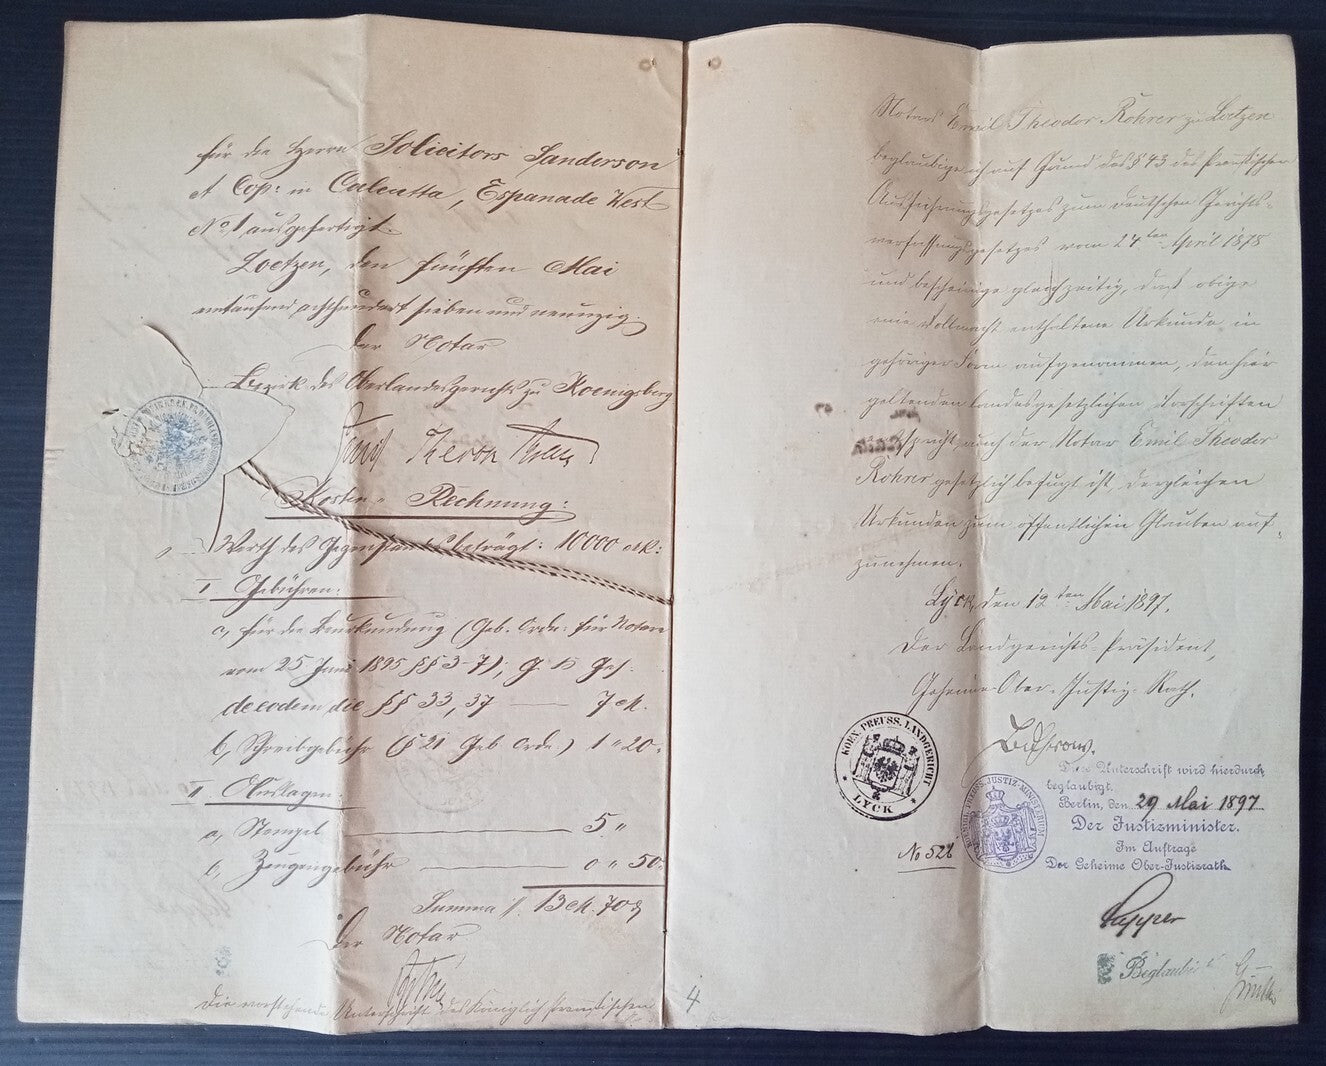 für die Herrn Solicitors Sanderson
et Cop: in Calcutta, Espanade West
No 1 ausgefertigt.
Loetzen, den fünften Mai
eintausend achthundert sieben und neunzig.
Der Notar
Bezirk des Oberlandesgerichts zu Koenigsberg
Emil Theodor
Kosten-Rechnung:
Werth des Gegenstandes beträgt: 10000 Mk:
I Gebühren:
a, für die Beurkundung (Geb. Ordn: für Notare
vom 25 Juni 1895 §§ 3-7);
de eodem die §§ 33, 37 — 7 M.
b, Schreibgebühr (§ 21 Geb Ordn.) 1 " 20
II Auslagen:
a, Stempel — 5 "
b, Zeugengebühr — 0 " 50
Summa 13 M. 70
Der Notar
Die vorstehende Unterschrift des Königlich Preußischen
4
Notars Emil Theodor Rohrer zu Loetzen
beglaubige ich auf Grund des § 43 des Preußischen
Ausführungsgesetzes zum deutschen Gerichts-
verfassungsgesetzes vom 24ten April 1878
und bescheinige gleichzeitig, daß obige
eine Vollmacht enthaltene Urkunde in
gehöriger Form aufgenommen, den hier
geltenden landesgesetzlichen Vorschriften
entspricht, auch der Notar Emil Theodor
Rohrer gesetzlich befugt ist, dergleichen
Urkunden zum öffentlichen Glauben auf-
zunehmen.
Lyck, den 12ten Mai 1897.
Der Landgerichts-Präsident,
Geheime Ober-Justiz-Rath.
KOEN. PREUSS. LANDGERICHT
LYCK
No 528
Die Unterschrift wird hierdurch
beglaubigt.
Berlin, den 29 Mai 1897
Der Justizminister.
Im Auftrage
Der Geheime Ober-Justizrath
JUSTIZ-MINISTERIUM
Beglaubigt